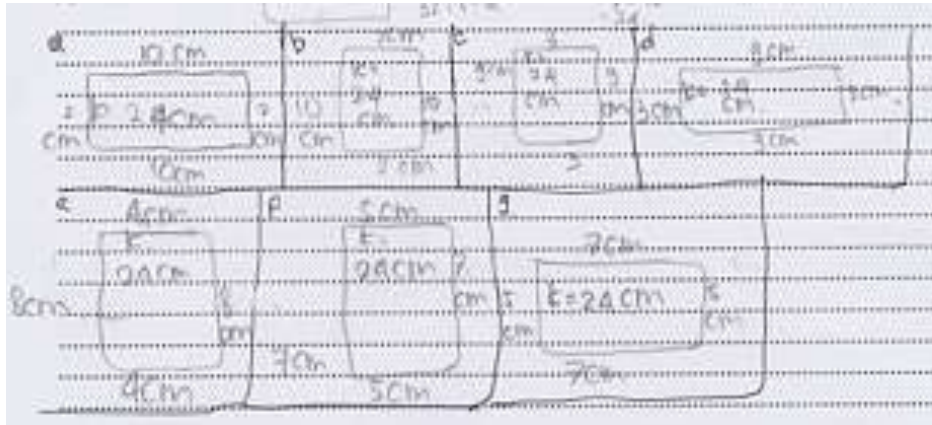 a
10 cm
2 cm
24 cm
2 cm
10 cm
b
2 cm
10 cm
24 cm
10 cm
2 cm
c
3
9 cm
24 cm
9 cm
3
d
3 cm
24 cm
e
4cm
8cm
24cm
8 cm
4cm
f
5cm
24cm
7 cm
7cm
5cm
g
7cm
5 cm
K=24cm
5 cm
7cm